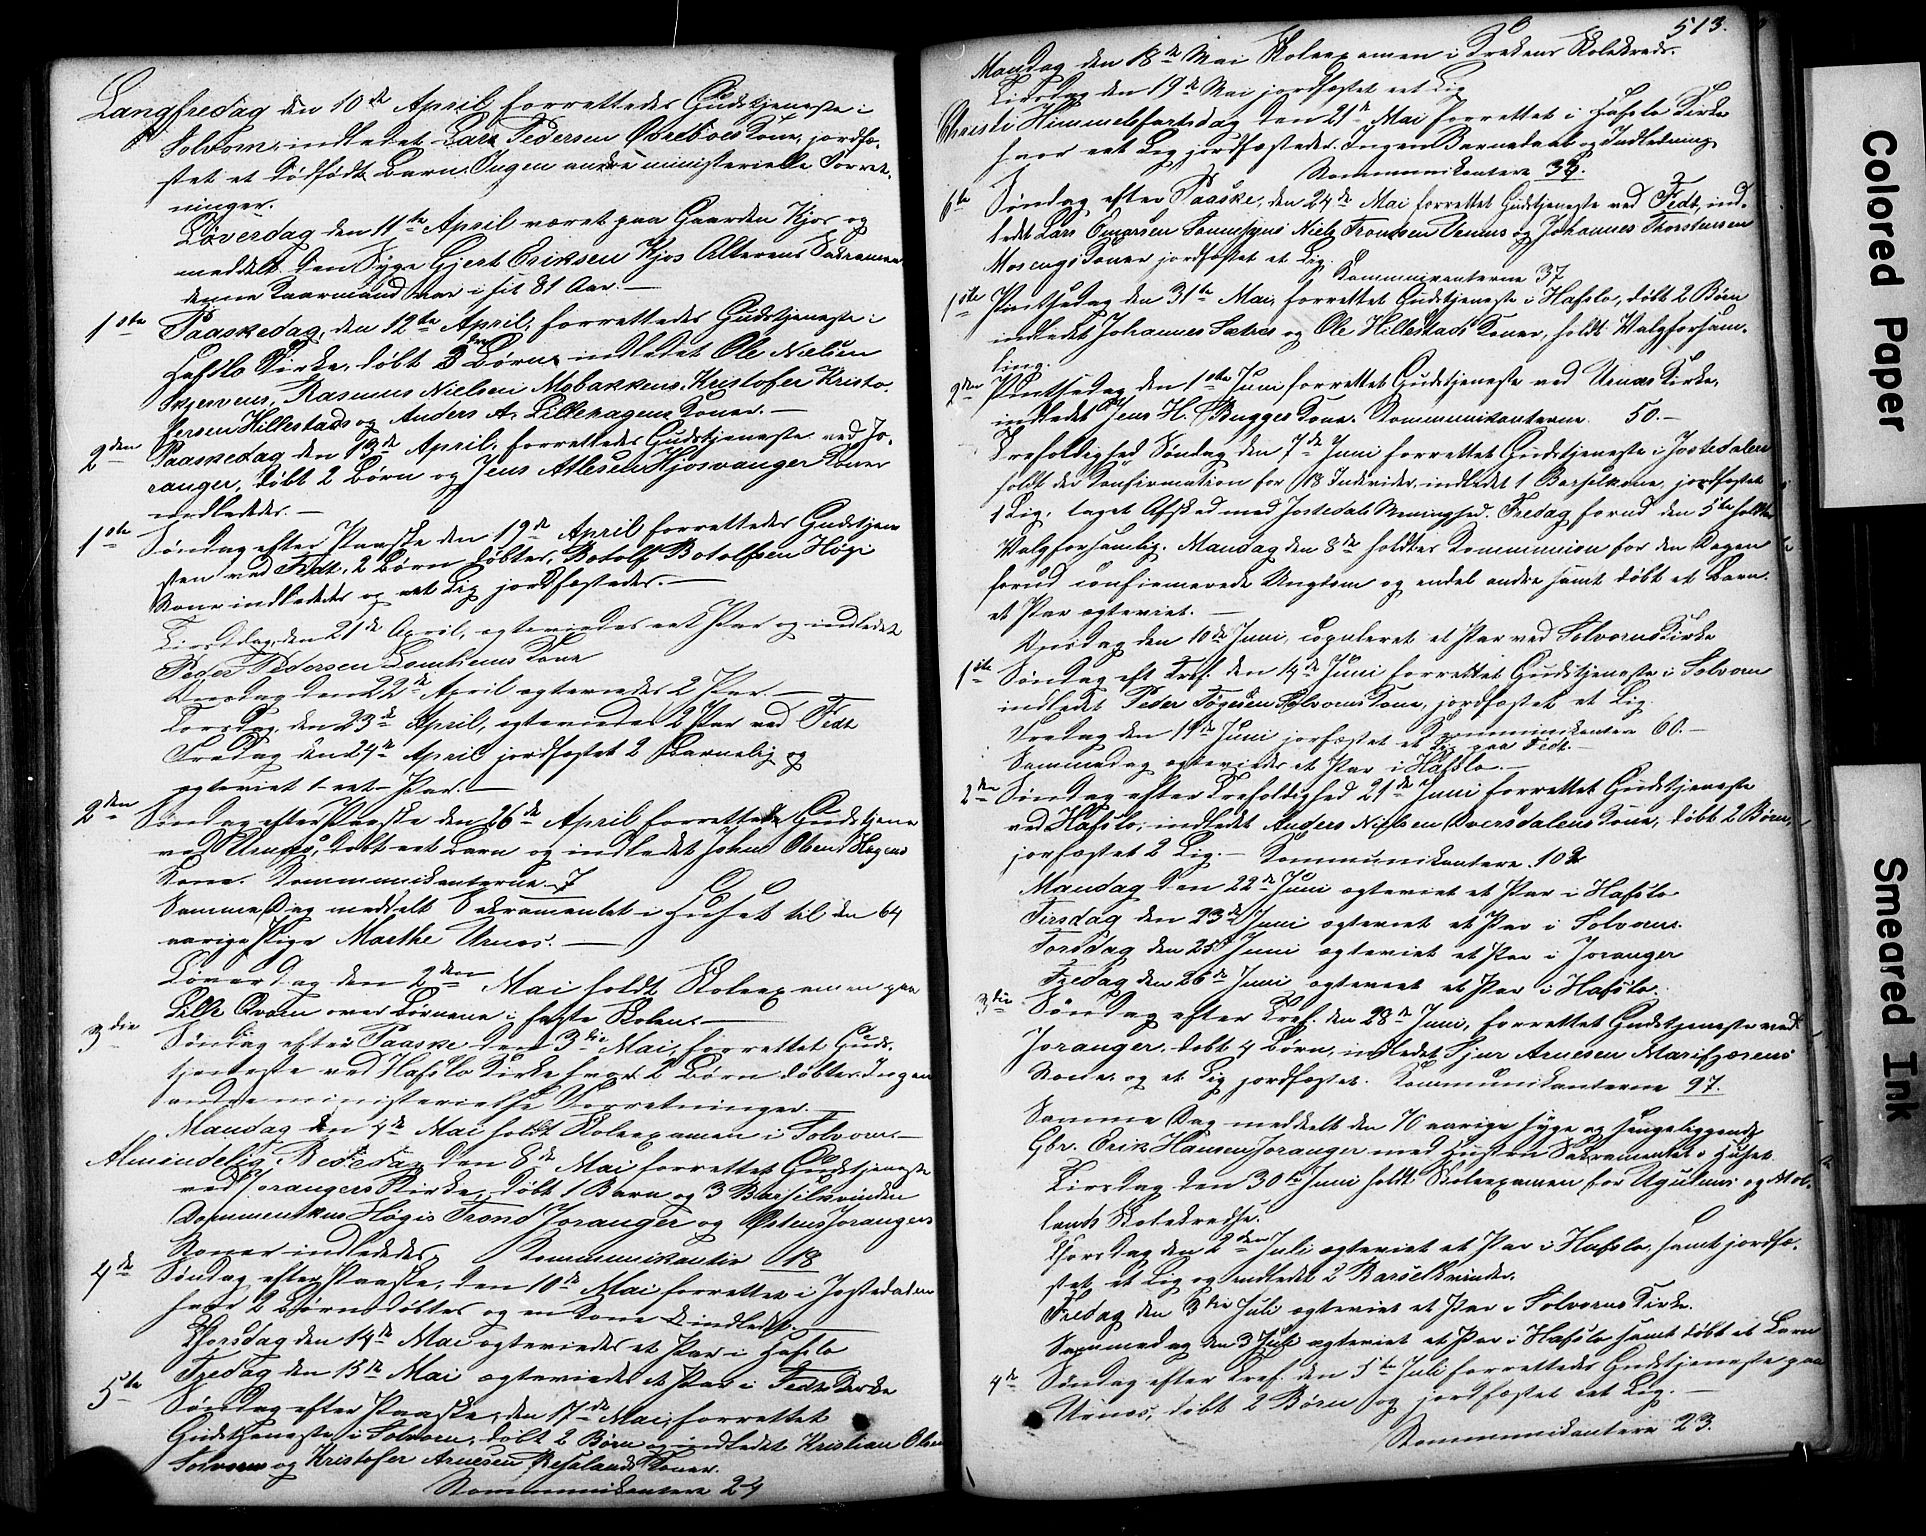 Langfredag den 10de April forrettedes Gudstjeneste i
Solvorn, indledet Lars Pedersen Øvrebøes Kone, jordfæ-
stet et dødfødt Barn. Ingen andre ministerielle Forret-
ninger.
Løverdag den 11te April været paa Gaarden Kjos og
meddelt den Syge Gjert Eriksen Kjos Alterens Sakramen
denne Kaarmand var i sit 81 Aar. —
1ste Paaskedag, den 12te April, forrettedes Gudstjeneste i
Hafslo Kirke, døbt 3 Børn, indledet Ole Nielsen
Skjervens, Rasmus Nielsen Mobakkens, Kristofer Kristo-
fersen Hillestads og Anders A. Lillehagens Koner. —
2den Paaskedag den 13de April, forrettedes Gudstjeneste ved Jo-
ranger, døbt 2 Børn og Jens Atlesen Kjosvanger Kone
indledet. —
1ste Søndag efter Paaske den 19de April forrettedes Gudstjene
sten ved Fedt, 2 Børn døbtes, Botolf Botolfsen Høgi
Kone indledet og eet Lig jordfæstedes. —
Tirsdag den 21de April, egteviedes eet Par og indledet
Peder Pedersen Kone
Onsdag den 22de April egteviedes 2 Par. —
Torsdag, den 23de April, egteviedes 2 Par ved Fedt
Fredag den 24de April jordfæstet 2 Barnelig og
egteviet 1 eet Par. —
2den Søndag efter Paaske den 26de April forrettede Gudstjene
ved Urnæs, døbt eet Barn og indledet Johan Olsen Hagens
Kone. Kommunikanterne 7
Samme Dag meddelt Sakramentet i Huset til den 64
aarige Pige Marthe Urnæs. —
Løverdag den 2den Mai holdt Skoleexamen paa
Lille Qvam over Børnene i faste Skolen. —
3die Søndag efter Paaske den 3die Mai, forrettet Guds-
tjeneste ved Hafslo Kirke hvor 2 Børn døbtes. Ingen
andre ministerielle Forretninger. —
Mandag den 4de Mai holdt Skoleexamen i Solvorn —
Almindelig Bededag den 8de Mai forrettet Gudstjeneste
ved Jorangers Kirke, døbt 1 Barn og 3 Barselkvinden
Høgis Trond Joranger og Østens Jorangers
Koner indledet, Kommunikanter 18
4de Søndag efter Paaske, den 10de Mai forrettet i Jostedalen
hvor 2 Børn døbtes og en Kone indledt. —
Thorsdag den 14de Mai egteviedes et Par i Hafslo
Fredag den 15de Mai egteviedes et Par i Fedt Kirke
5te Søndag efter Paaske, den 17de Mai, forrettet
Gudstjeneste i Solvorn, døbt 2 Børn og indledet Kristian Olsen
Solvorn og Kristofer Arnesen Besalands Koner.
Kommunikantere 24
513.
Mandag den 18de Mai Skoleexamen i Krekens Skolekreds.
Tirsdag den 19de Mai jordfæstet eet Lig
Christi Himmelfartsdag den 21de Mai forrettet i Hafslo Kirke
hvor eet Lig jordfæstedes. Ingen Barnedaab og Indledning
Kommunikantere 33.
6te Søndag efter Paaske, den 24de Mai forrettet Gudstjeneste ved Fedt, ind-
ledet Lars Niels Tronsen Urnæs og Johannes Thorstensen
Mosengs Koner jordfæstet et Lig.
Kommunikanterne 37
1ste Pintsedag den 31te Mai, forrettet Gudstjeneste i Hafslo, døbt 2 Børn
indledet Johannes Sætres og Ole Hillestads Koner, holdt Valgforsam-
ling.
2den Pintsedag den 1ste Juni forrettet Gudstjeneste ved Urnæs Kirke,
indledet Jens H. Bugges Kone. Kommunikanterne 50. —
Trefoldighed Søndag den 7de Juni forrettet Gudstjeneste i Jostedalen
holdt der Konfirmation for 18 Individer, indledet 1 Barselkone, jordfæstet
1 Lig, taget Afsked med Jostedals Menighed. Fredag forud den 5te holdtes
Valgforsamlig. Mandag den 8de holdtes Kommunion for den Dagen
forud confirmerede Ungdom og endel andre samt døbt et Barn.
et Par egteviet. —
Onsdag den 10de Juni, copuleret et Par ved Solvorns Kirke
1ste Søndag eft Tref. den 14de Juni forrettet Gudstjeneste i Solvorn
indledet Peder Tøgesen Solvorns Kone, jordfæstet et Lig.
Kommunikantere 60. —
Fredag den 19de Juni jorfæstet et Lig paa Fedt. —
Sammedag egteviedes et Par i Hafslo. —
2den Søndag efter Trefoldighed 21de Juni forrettet Gudstjeneste
ved Hafslo, indledet Anders Nielsen Kversdalens Kone, døbt 2 Børn,
jorfæstet 2 Lig. — Kommunikantere 102
Mandag den 22de Juni egteviet et Par i Hafslo
Tirsdag den 23de Juni egteviet et Par i Solvorn.
Torsdag den 25de Juni egteviet et Par i Joranger
Fredag den 26de Juni egteviet et Par i Hafslo.
3die Søndag efter Tref. den 28de Juni, forrettet Gudstjeneste ved
Joranger, døbt 4 Børn, indledet Sjur Arnesen Marifjærens
Kone, og et Lig jordfæstet. Kommunikanterne 97.
Samme Dag meddeelt den 70 aarige syge og sengeliggende
Gbr. Erik Hansen Joranger med Hustru Sakramentet i Huset
Tirsdag den 30te Juni holdt Skoleexamen for Ugulens og Mol-
lands Skolekredse.
Thorsdag den 2den Juli egteviet et Par i Hafslo, samt jordfæ-
stet et Lig og indledet 2 Barselkvinder.
Fredag den 3die Juli egteviet et Par i Solvorns Kirke.
Sammedag den 3 Juli egteviet et Par i Hafslo samt døbt et Barn
4de Søndag efter Tref. den 5te Juli forrettedes Gudstjeneste paa
Urnæs, døbt 2 Børn og jordfæstet eet Lig. —
Kommunikantere 23.
Colored Paper
Smeared Ink